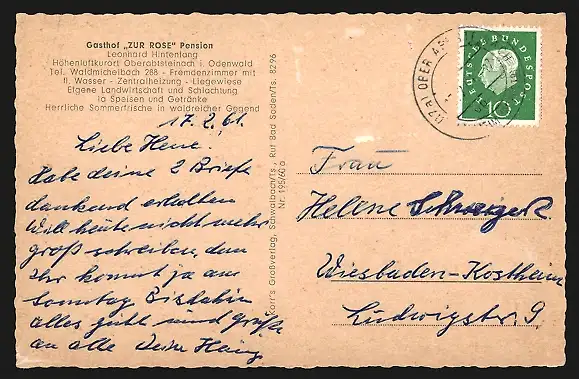 Gasthof „ZUR ROSE" Pension
Leonhard Hintenlang
Höhenluftkurort Oberabtsteinach i. Odenwald
Tel. Waldmichelbach 288 - Fremdenzimmer mit
fl. Wasser - Zentralheizung - Liegewiese
Eigene Landwirtschaft und Schlachtung
Ia Speisen und Getränke
Herrliche Sommerfrische in waldreicher Gegend
17.2.61.
Liebe
Habe deine 2 Briefe
dankend erhalten
Will heute nicht mehr
groß schreiben, denn
Ihr kommt ja am
Sonntag. Bis dahin
alles gute und Grüße
an alle Dein Heinz
Kort's Großverlag, Schwalbach/Ts., Ruf Bad Soden/Ts. 8296
Nr. 195/60 a
DEUTSCHE BUNDESPOST
10
Frau
Helene
Wiesbaden-Kostheim
Ludwigstr. 9.